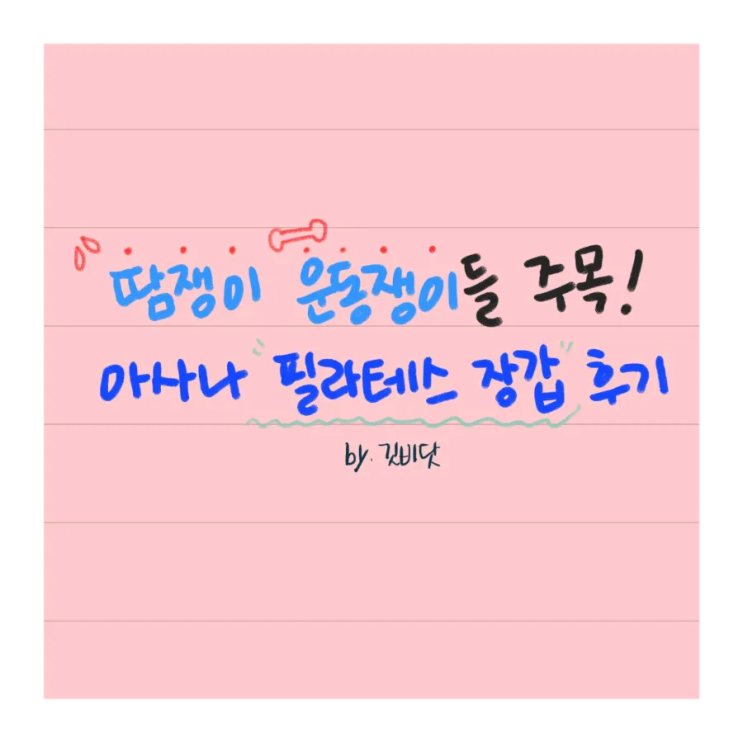 땀쟁이 운동쟁이들 주목!
아사나 "필라테스 장갑" 후기
by. 깃비닷